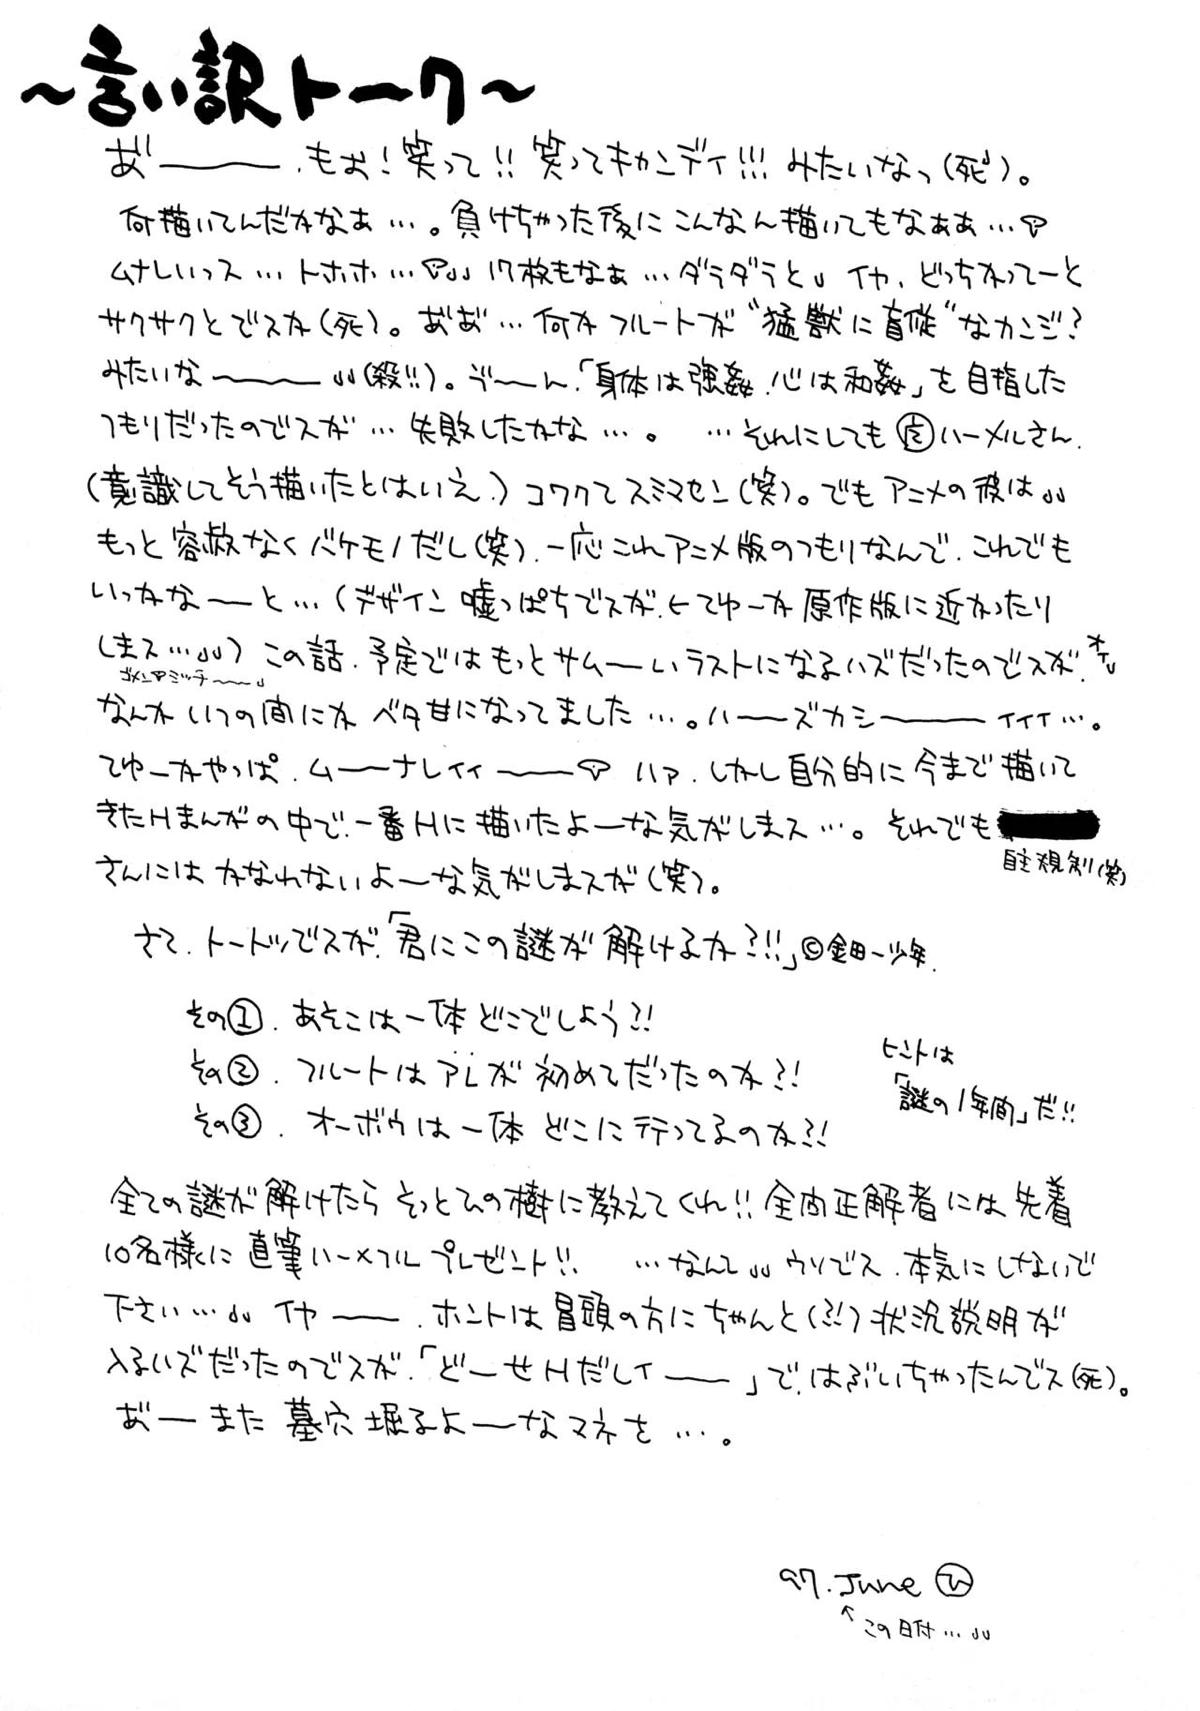 ～言い訳トーク～
あ゛――、もお！笑って!!笑ってキャンディ!!!みたいなっ（死）。
何描いてんだかなぁ…。負けちゃった後にこんなん描いてもなぁぁ…♡
ムナしいっス…トホホ…♡ 17枚もなぁ…ダラダラと イヤ、どっちかってーと
サクサクとでスか（死）。あ゛あ゛…何かフルートが“猛獣に盲従”なカンジ？
みたいな――（殺!!）。う゛ーん、「身体は強姦、心は和姦」を目指した
つもりだったのでスが…失敗したかな…。 …それにしても ハーメルさん、
（意識してそう描いたとはいえ、）コワクてスミマセン（笑）。でもアニメの彼は
もっと容赦なくバケモノだし（笑）、一応これアニメ版のつもりなんで、これでも
いっかなーと…（デザイン嘘っぱちでスが、とてゆーか原作版に近かったり
しまス…）この話、予定ではもっとサムーいラストになるハズだったのでスが、オイ
ゴメン♡ミッチ～
なんかいつの間にかベタ甘になってました…。ハーズカシ――イイイ…。
てゆーかやっぱ、ムーナしイイ――♡ ハァ、しかし自分的に今まで描いて
きたHまんがの中で、一番Hに描いたよーな気がしまス…。それでも
自主規制（笑）
さんにはかなわないよーな気がしまスが（笑）。
さて、トートツでスが、「君にこの謎が解けるか?!!」©金田一少年.
その①. あそこは一体どこでしょう?!
その②. フルートはアレが初めてだったのか?!
その③. オーボウは一体どこに行ってるのか?!
ヒントは
「謎の1年間」だ!!
全ての謎が解けたらそっとひの樹に教えてくれ!!全問正解者には先着
10名様に直筆ハーメルプレゼント!! …なんて ウソでス、本気にしないで
下さい… イヤ――、ホントは冒頭の方にちゃんと（?!）状況説明が
入るハズだったのでスが、「どーせHだしイ――」で、はぶいちゃったんでス（死）。
あ゛ーまた墓穴堀るよーなマネを…。
97. June ひ
↑この日付…